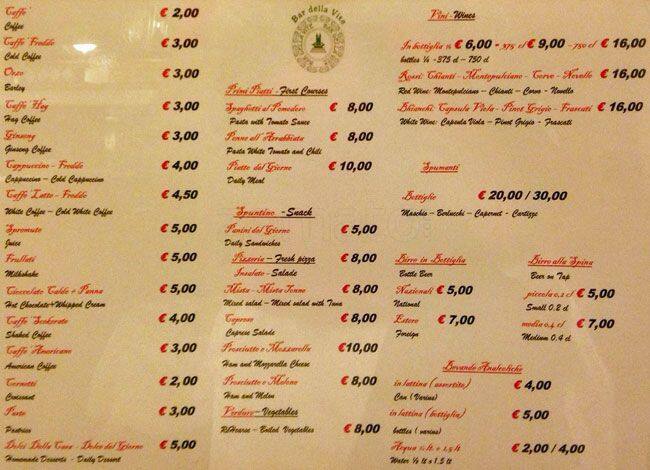 Caffe' € 2,00
Coffee
Caffe' Freddo € 3,00
Cold Coffee
Orzo € 3,00
Barley
Caffe' Hag € 3,00
Hag Coffee
Ginseng € 3,00
Ginseng Coffee
Cappuccino - Freddo € 4,00
Cappuccino – Cold Cappuccino
Caffe' Latte - Freddo € 4,50
White Coffee – Cold White Coffee
Spremute € 5,00
Juice
Frullati € 5,00
Milkshake
Cioccolate Caldo + Panna € 5,00
Hot Chocolate+Whipped Cream
Caffe' Scekerato € 4,00
Shaked Coffee
Caffe' Americano € 3,00
American Coffee
Cornetti € 2,00
Croissant
Paste € 3,00
Pastries
Dolci Della Casa - Dolce del Giorno € 5,00
Homemade Desserts - Daily Dessert
Bar della Vite
Primi Piatti - First Courses
Spaghetti al Pomodoro € 8,00
Pasta with Tomato Sauce
Penne all'Arrabbiata € 8,00
Pasta White Tomato and Chili
Piatto del Giorno € 10,00
Daily Meal
Spuntino - Snack
Panini del Giorno € 5,00
Daily Sandwiches
Pizzeria – Fresh pizza € 8,00
Insalate - Salade
Mista - Mista Tonno € 8,00
Mixed salad – Mixed salad with Tuna
Caprese € 8,00
Caprese Salade
Prosciutto e Mozzarella €10,00
Ham and Mozzarella Cheese
Prosciutto e Melone € 8,00
Ham and Melon
Verdure – Vegetables
Boiled Vegetables € 8,00
Vini - Wines
In bottiglia ¼ € 6,00 - 375 cl € 9,00 - 750 cl € 16,00
bottles ¼ - 375 cl – 750 cl
Rossi: Chianti - Montepulciano - Corvo - Novello € 16,00
Red Wine: Montepulciano – Chianti – Corvo - Novello
Bhianchi: Capsula Viola - Pinot Grigio - Frascati € 16,00
White Wine: Capsula Viola – Pinot Grigio - Frascati
Spumanti
Bottiglie € 20,00 / 30,00
Maschio – Berlucchi – Capernet - Cartizze
Birre in Bottiglia
Bottle Beer
Nazionali € 5,00
National
Estere € 7,00
Foreign
Birre alla Spina
Beer on Tap
piccola 0,2 cl € 5,00
Small 0.2 cl
media 0,4 cl € 7,00
Medium 0.4 cl
Bevande Analcoliche
in lattina (assortite) € 4,00
Can (Varius)
in lattina (bottiglia) € 5,00
bottles (varius)
Acqua ½ lt. e 1,5 lt € 2,00 / 4,00
Water ½ lt e 1.5 lt